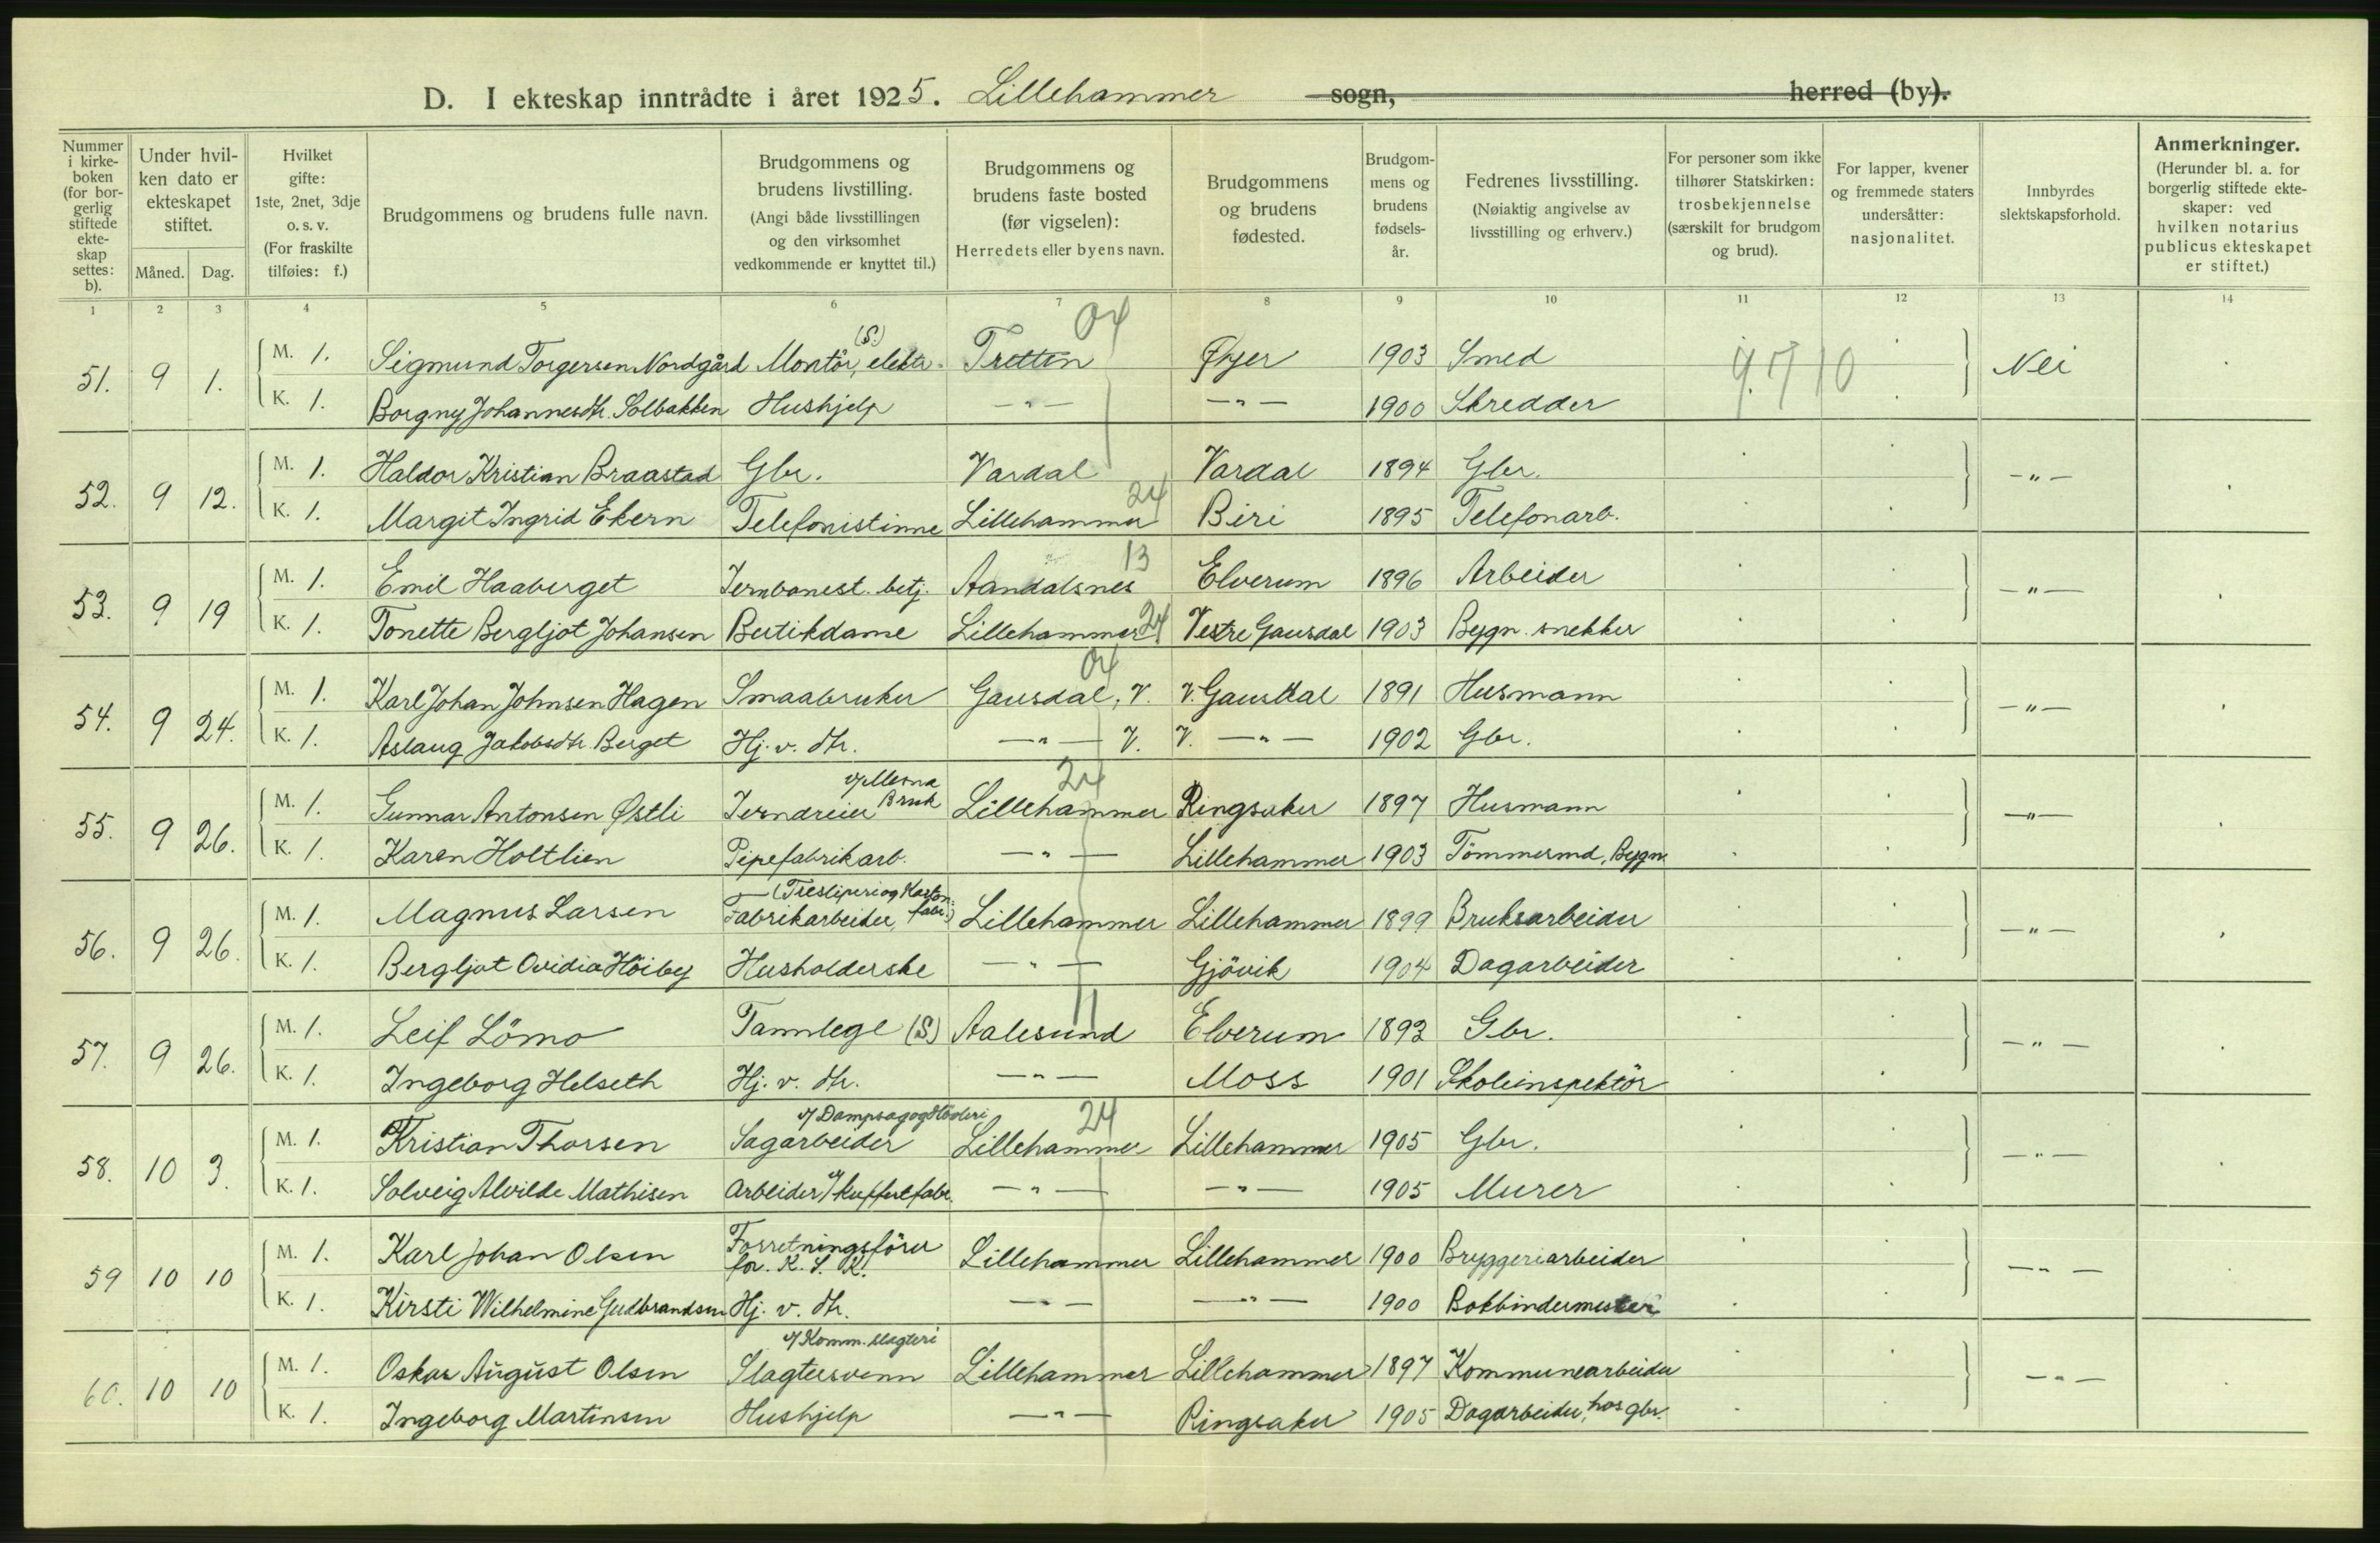 D. I ekteskap inntrådte i året 1925. Lillehammer sogn, herred (by).
Nummer i kirkeboken (for borgerlig stiftede ekteskap settes: b).
Under hvilken dato er ekteskapet stiftet.
Måned. Dag.
Hvilket gifte: 1ste, 2net, 3dje o. s. v. (For fraskilte tilføies: f.)
Brudgommens og brudens fulle navn.
Brudgommens og brudens livstilling. (Angi både livsstillingen og den virksomhet vedkommende er knyttet til.)
Brudgommens og brudens faste bosted (før vigselen): Herredets eller byens navn.
Brudgommens og brudens fødested.
Brudgommens og brudens fødselsår.
Fedrenes livsstilling. (Nøiaktig angivelse av livsstilling og erhverv.)
For personer som ikke tilhører Statskirken: trosbekjennelse (særskilt for brudgom og brud).
For lapper, kvener og fremmede staters undersåtter: nasjonalitet.
Innbyrdes slektskapsforhold.
Anmerkninger. (Herunder bl. a. for borgerlig stiftede ekteskaper: ved hvilken notarius publicus ekteskapet er stiftet.)
1 2 3 4 5 6 7 8 9 10 11 12 13 14
04
51. 9 1. M. 1. Sigmund Torgersen Nordgård Montör, elektr. (S.) Tretten Øyer 1903 Smed Nei
K. 1. Borgny Johannesdtr. Solbakken Hushjelp —"— —"— 1900 Skredder
52. 9 12. M. 1. Haldor Kristian Braastad Gbr. Vardal Vardal 1894 Gbr. —"—
K. 1. Margit Ingrid Ekern Telefonistinne Lillehammer 24 Biri 1895 Telefonarb.
53. 9 19 M. 1. Emil Haaberget Jernbanest. betj. Aandalsnes 13 Elverum 1896 Arbeider —"—
K. 1. Tonette Bergljot Johansen Butikdame Lillehammer 24 Vestre Gausdal 1903 Bygn. snekker
04
54. 9 24. M. 1. Karl Johan Johnsen Hagen Smaabruker Gausdal, V. V. Gausdal 1891 Husmann —"—
K. 1. Aslaug Jakobsdtr. Berget Hj. v. dtr. —"— V. V. —"— 1902 Gbr.
24
55. 9 26. M. 1. Gunnar Antonsen Østli Jerndreier v/ Mesna Bruk Lillehammer Ringsaker 1897 Husmann —"—
K. 1. Karen Holtlien Pipefabrikarb. —"— Lillehammer 1903 Tömmermd, Bygn.
56. 9 26. M. 1. Magnus Larsen Fabrikarbeider, (Tresliperi og Karton. fabr.) Lillehammer Lillehammer 1899 Bruksarbeider —"—
K. 1. Bergljot Ovidia Höiby Husholderske —"— Gjövik 1904 Dagarbeider
11
57. 9 26. M. 1. Leif Lömo Tannlege (S) Aalesund Elverum 1893 Gbr. —"—
K. 1. Ingeborg Helseth Hj. v. dtr. —"— Moss 1901 Skoleinspektör
24
58. 10 3. M. 1. Kristian Thorsen Sagarbeider v/ Dampsag og Hövleri Lillehammer Lillehammer 1905 Gbr. —"—
K. 1. Solveig Alvilde Mathisen Arbeider v/ kuffertfabr. —"— —"— 1905 Murer
59 10 10 M. 1. Karl Johan Olsen Forretningsförer for. K. S. K. Lillehammer Lillehammer 1900 Bryggeriarbeider —"—
K. 1. Kirsti Wilhelmine Gudbrandsen Hj. v. dtr. —"— —"— 1900 Bokbindermester
60. 10 10 M. 1. Oskar August Olsen Slagtersvenn v/ Komm. slagteri Lillehammer Lillehammer 1897 Kommunearbeider —"—
K. 1. Ingeborg Martinsen Hushjelp —"— Ringsaker 1905 Dagarbeider, hos gbr.